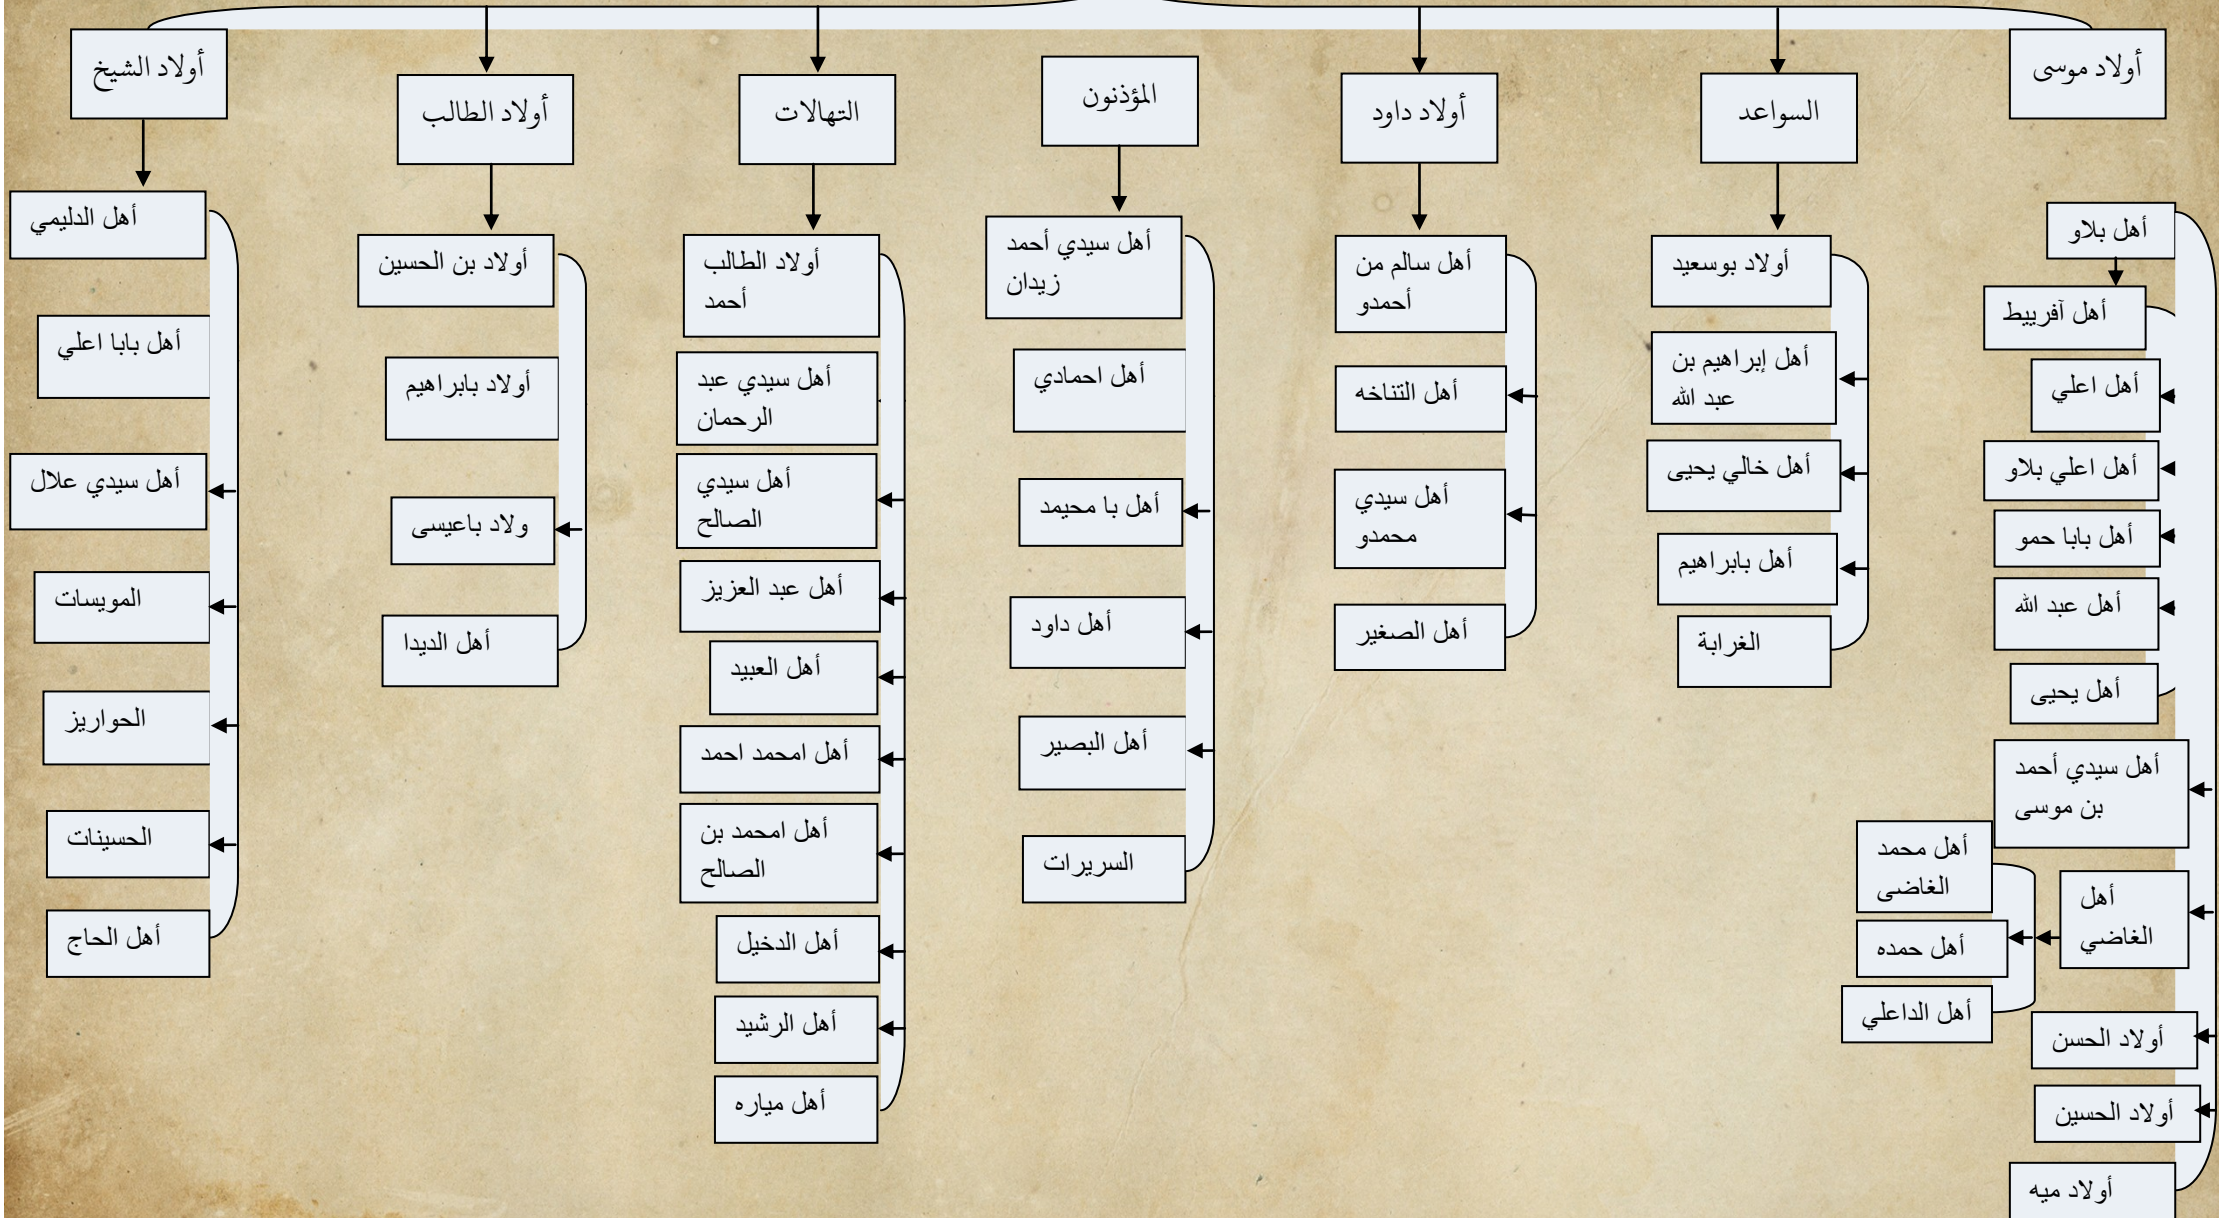 أولاد موسى
السواعد
أولاد داود
المؤذنون
التهالات
أولاد الطالب
أولاد الشيخ
أهل بلاو
أهل آفرييط
أهل اعلي
أهل اعلي بلاو
أهل بابا حمو
أهل عبد الله
أهل يحيى
أهل سيدي أحمد
بن موسى
أهل
الغاضي
أهل محمد
الغاضى
أهل حمده
أهل الداعلي
أولاد الحسن
أولاد الحسين
أولاد ميه
أولاد بوسعيد
أهل إبراهيم بن
عبد الله
أهل خالي يحيى
أهل بابراهيم
الغرابة
أهل سالم من
أحمدو
أهل التناخه
أهل سيدي
محمدو
أهل الصغير
أهل سيدي أحمد
زيدان
أهل احمادي
أهل با محيمد
أهل داود
أهل البصير
السريرات
أولاد الطالب
أحمد
أهل سيدي عبد
الرحمان
أهل سيدي
الصالح
أهل عبد العزيز
أهل العبيد
أهل امحمد احمد
أهل امحمد بن
الصالح
أهل الدخيل
أهل الرشيد
أهل مياره
أولاد بن الحسين
أولاد بابراهيم
ولاد باعيسى
أهل الديدا
أهل الدليمي
أهل بابا اعلي
أهل سيدي علال
المويسات
الحواريز
الحسينات
أهل الحاج